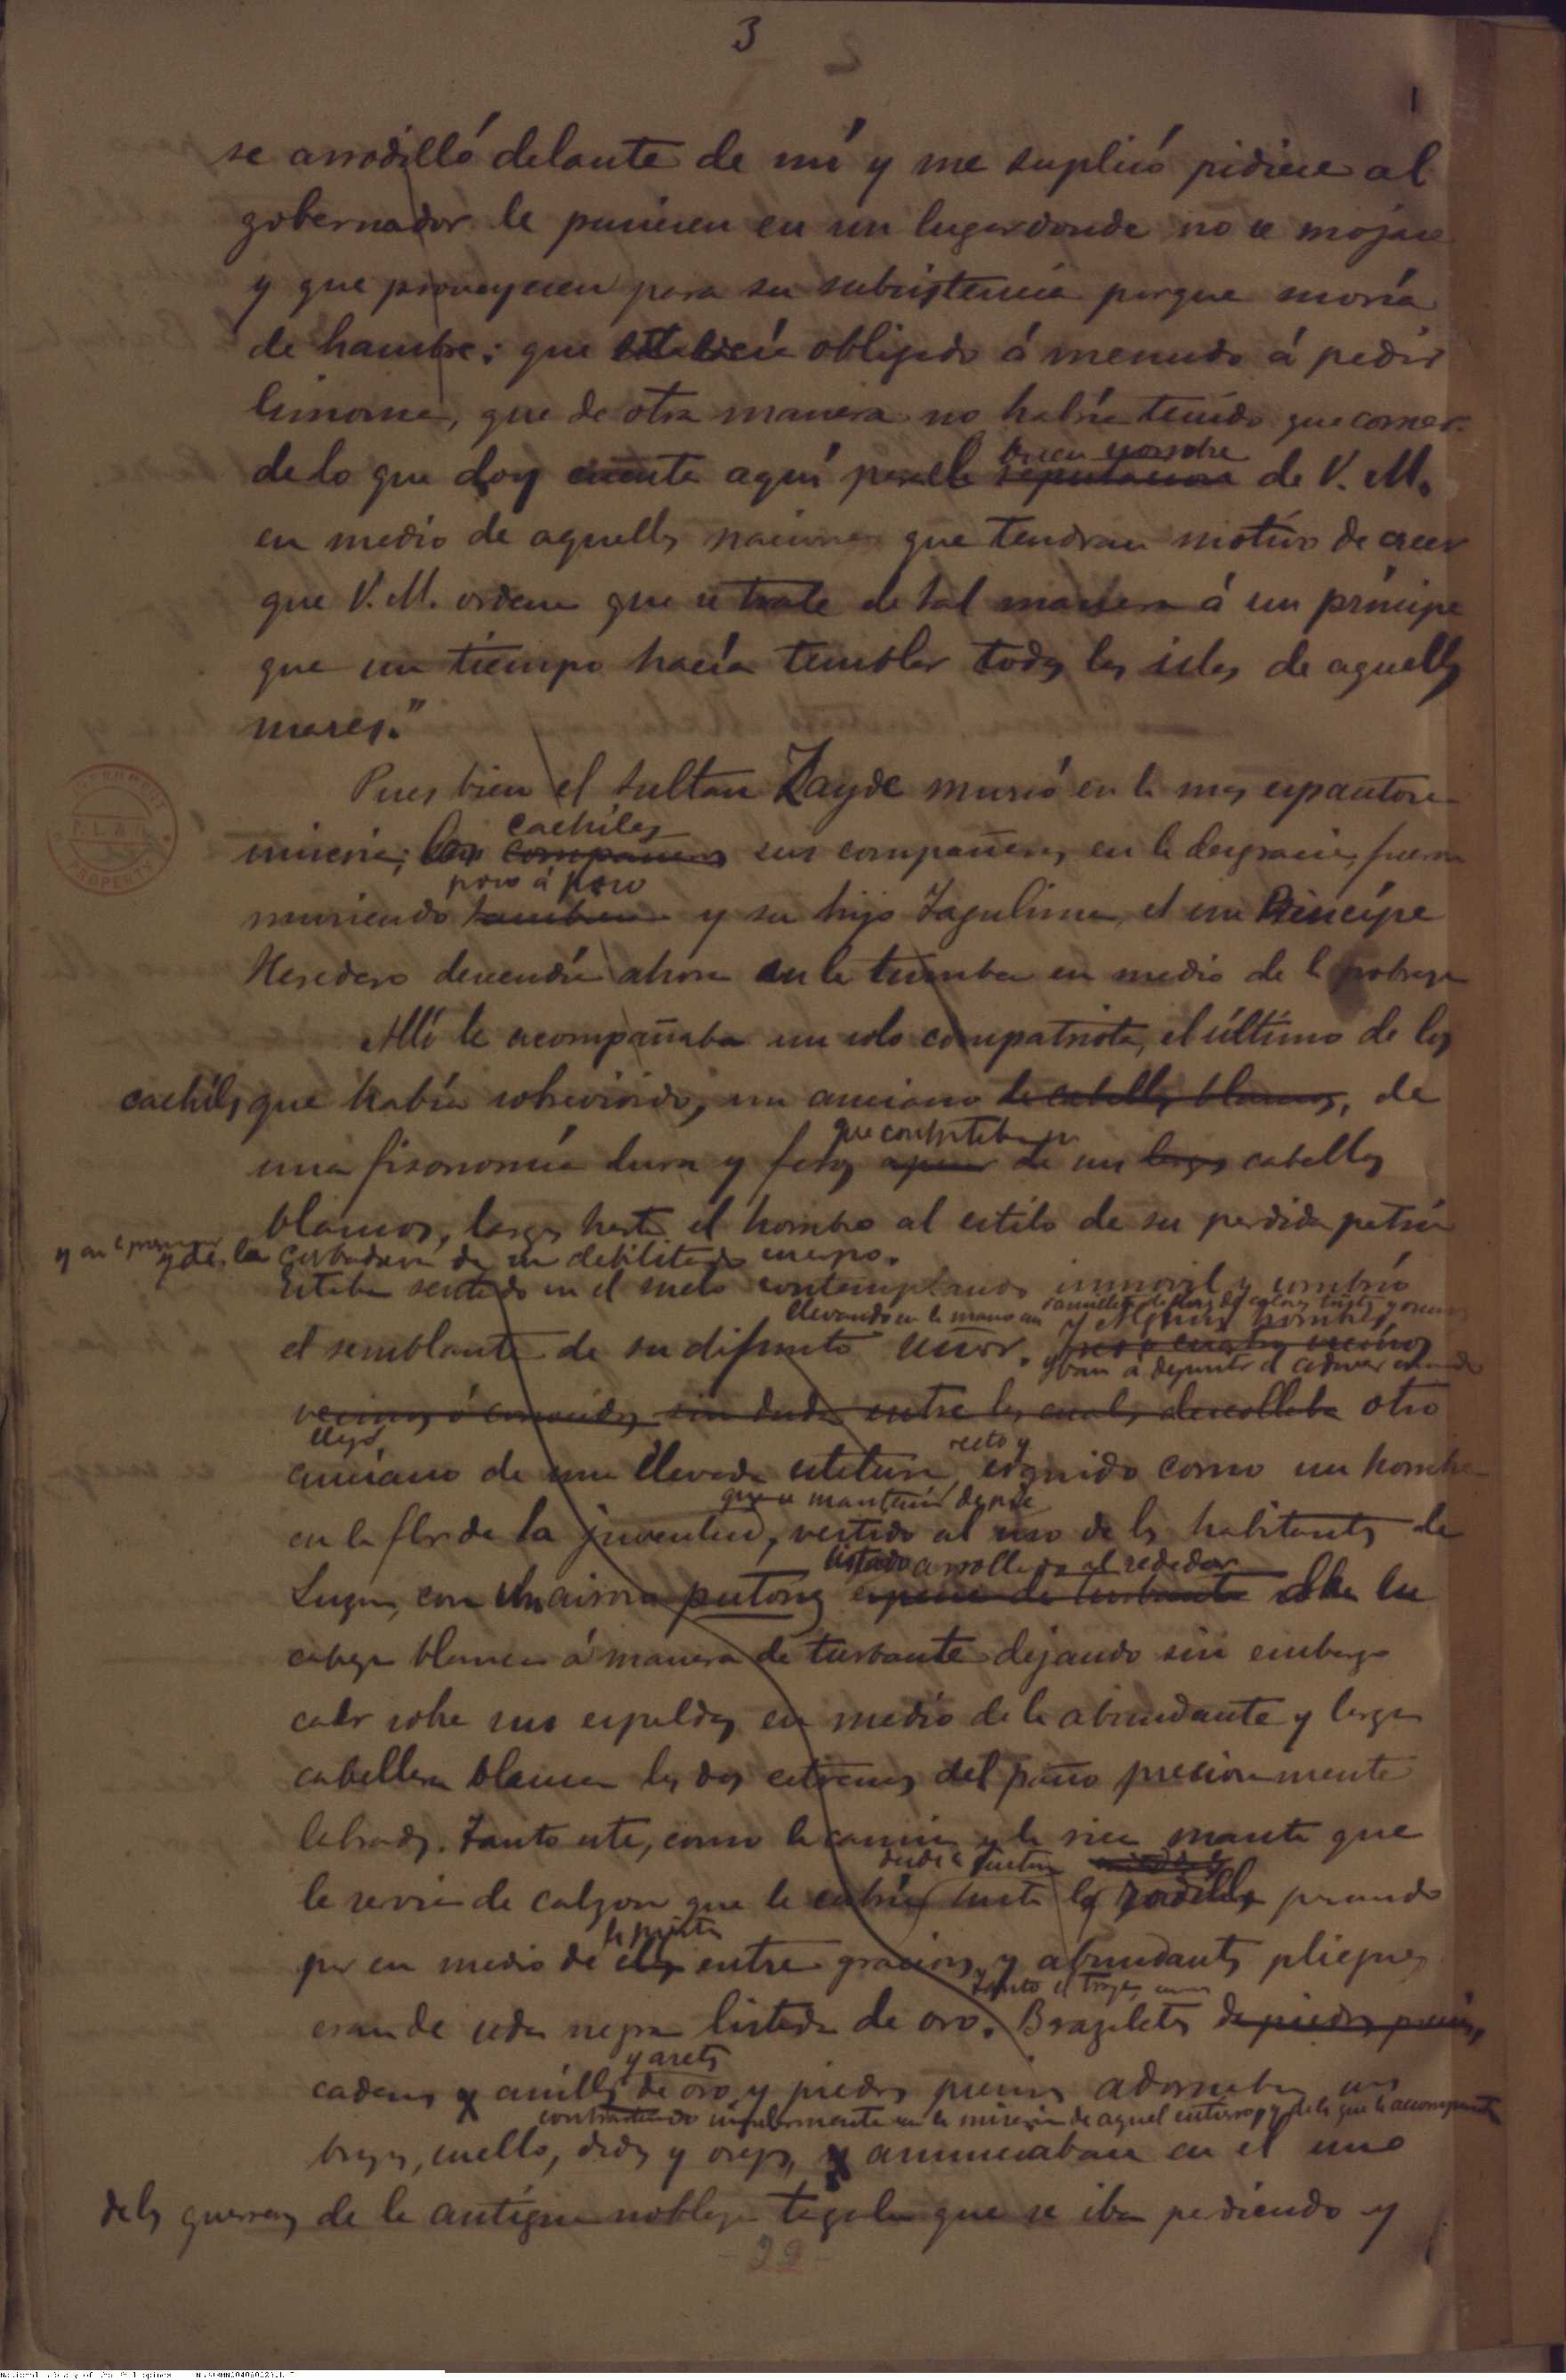 3
1
se arrodilló delante de mí y me suplicó pidiese al
gobernador le pusiesen en un lugar donde no se mojase
y que proveyesen para su subsistencia porque moría
de hambre; que obligado á menudo á pedir
limosna, que de otra manera no habría tenido que comer.
buen nombre
de lo que doy cuenta aquí para la reputacion de V. M.
en medio de aquellas naciones que tendran motivo de creer
que V. M. ordena que se trate de tal manera á un príncipe
que un tiempo hacía temblar todas las islas de aquellos
mares."
Pues bien el sultan Zayde murió en la mas espantosa
cachiles
miseria; los compañeros sus compañeros en la desgracia, fueron
poco á poco
muriendo tambien y su hijo Tagulima, el Príncipe
Heredero descendía ahora en la tumba en medio de la pobreza
Allí le acompañaba un solo compatriota, el último de los
cachiles que había sobrevivido, un anciano de cabellos blancos, de
que contrastaban
una fisonomía dura y apesar de sus largos cabellos
blancos, largos hasta el hombro al estilo de su perdida patria
y de la de su debilitado cuerpo.
Estaba sentado en el suelo contemplando inmovil y sombrío
llevando en la mano un
y algunos hombres
el semblante de su difunto señor. tres o cuatro vecinos
yban á depositar el cadaver
vecinos ó conocidos sin duda entre los cuales descollaba otro
llegó,
recto y
anciano de una elevada estatura, erguido como un hombre
que se mantenía de pie
en la flor de la juventud, vestido al uso de los habitantes de
listado arrollado al rededor
Luzon, con un airoso putong especie de turbante sobre su
cabeza blanca á manera de turbante dejando sin embargo
caer sobre sus espaldas en medio de la abundante y larga
cabellera blanca los dos extremos del paño preciosamente
labrados. Tanto este, como la camisa y la rica manta que
desde la cintura
le servía de calzon que le cubría hasta las rodillas pasando
por en medio de ellas entre graciosos y abundantes pliegues
tanto el traje, como
eran de seda negra listada de oro. Brazaletes de piedras preciosas,
y aretes
cadenas y anillos de oro y piedras preciosas adornaban sus
contrastando con la miseria de aquel entierro y de los que le acompañaban
brazos, cuello, dedos y orejas, y anunciaban en él uno
de los guerreros de la antigua nobleza tagala que se iba perdiendo y
22